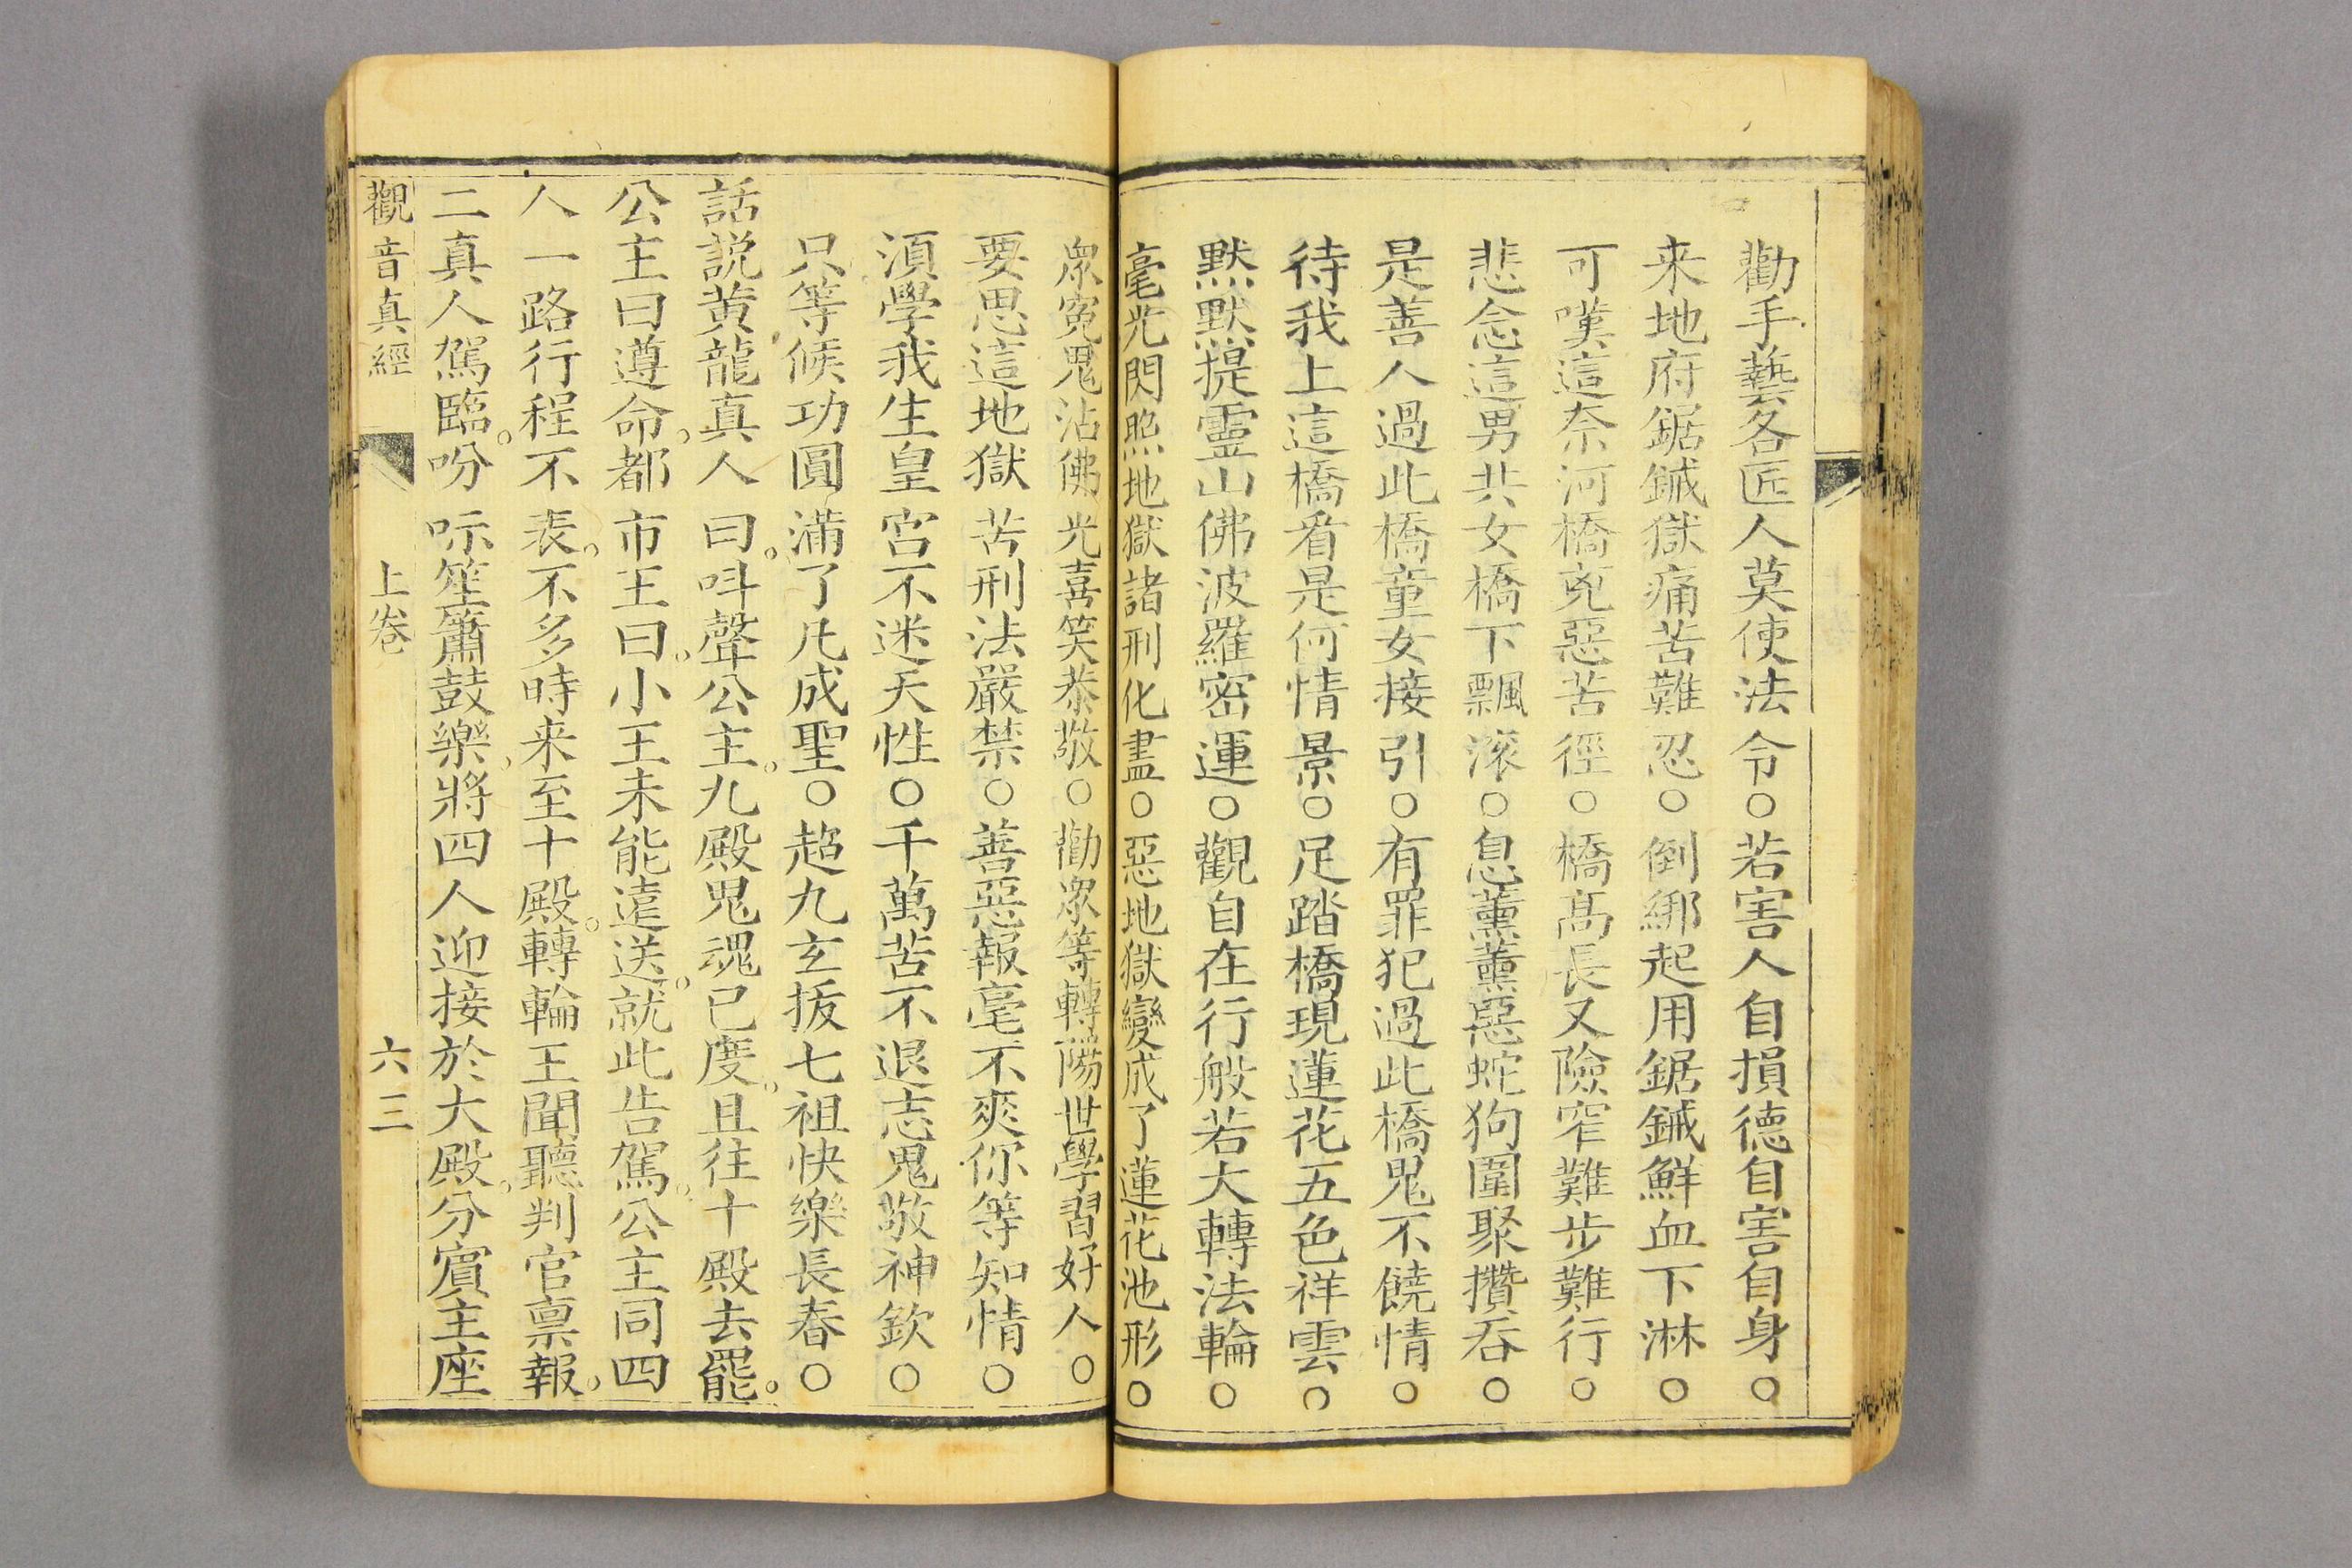 勸手藝各匠人莫使法令○若害人自損德自害自身○
来地府鋸鉞獄痛苦難忍○倒綁起用鋸鉞鮮血下淋○
可嘆這奈河橋兇惡苦徑○橋髙長又險窄難步難行○
悲念這男共女橋下飄滚○息薰薰惡蛇狗圍聚攢吞○
是善人過此橋童女接引○有罪犯過此橋鬼不饒情○
待我上這橋看是何情景○足踏橋現蓮花五色祥雲○
默默提靈山佛波羅密運○觀自在行般若大轉法輪○
毫光閃照地獄諸刑化盡○惡地獄變成了蓮花池形○
眾寃鬼沾佛光喜笑恭敬○勸眾等轉陽世學習好人○
要思這地獄苦刑法嚴禁○善惡報毫不爽你等知情○
須學我生皇宮不迷天性○千萬苦不退志鬼敬神欽○
只等候功圓滿了凡成聖○超九玄拔七祖快樂長春○
話説黄龍真人曰。呌聲公主。九殿鬼魂已度。且往十殿去罷。
公主曰遵命。都市王曰。小王未能遠送。就此告駕。公主同四
人一路行程不表。不多時来至十殿。轉輪王聞聽判官禀報。
二真人駕臨。吩咶笙簫鼓樂。將四人迎接於大殿。分賓主座
觀音真經 上卷 六三